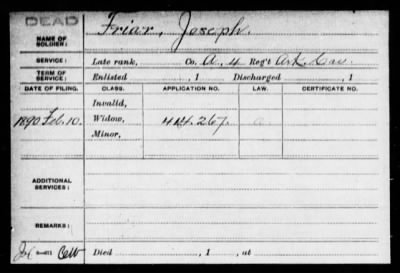 DEAD
NAME OF SOLDIER: Friar, Joseph.
SERVICE: Late rank, Co. A, 4 Reg't Ark. Cav.
TERM OF SERVICE: Enlisted , 1 Discharged , 1
DATE OF FILING. CLASS. APPLICATION NO. LAW. CERTIFICATE NO.
Invalid,
1890 Feb. 10. Widow, 414.267.
Minor,
ADDITIONAL SERVICES:
REMARKS:
Died , 1 , at